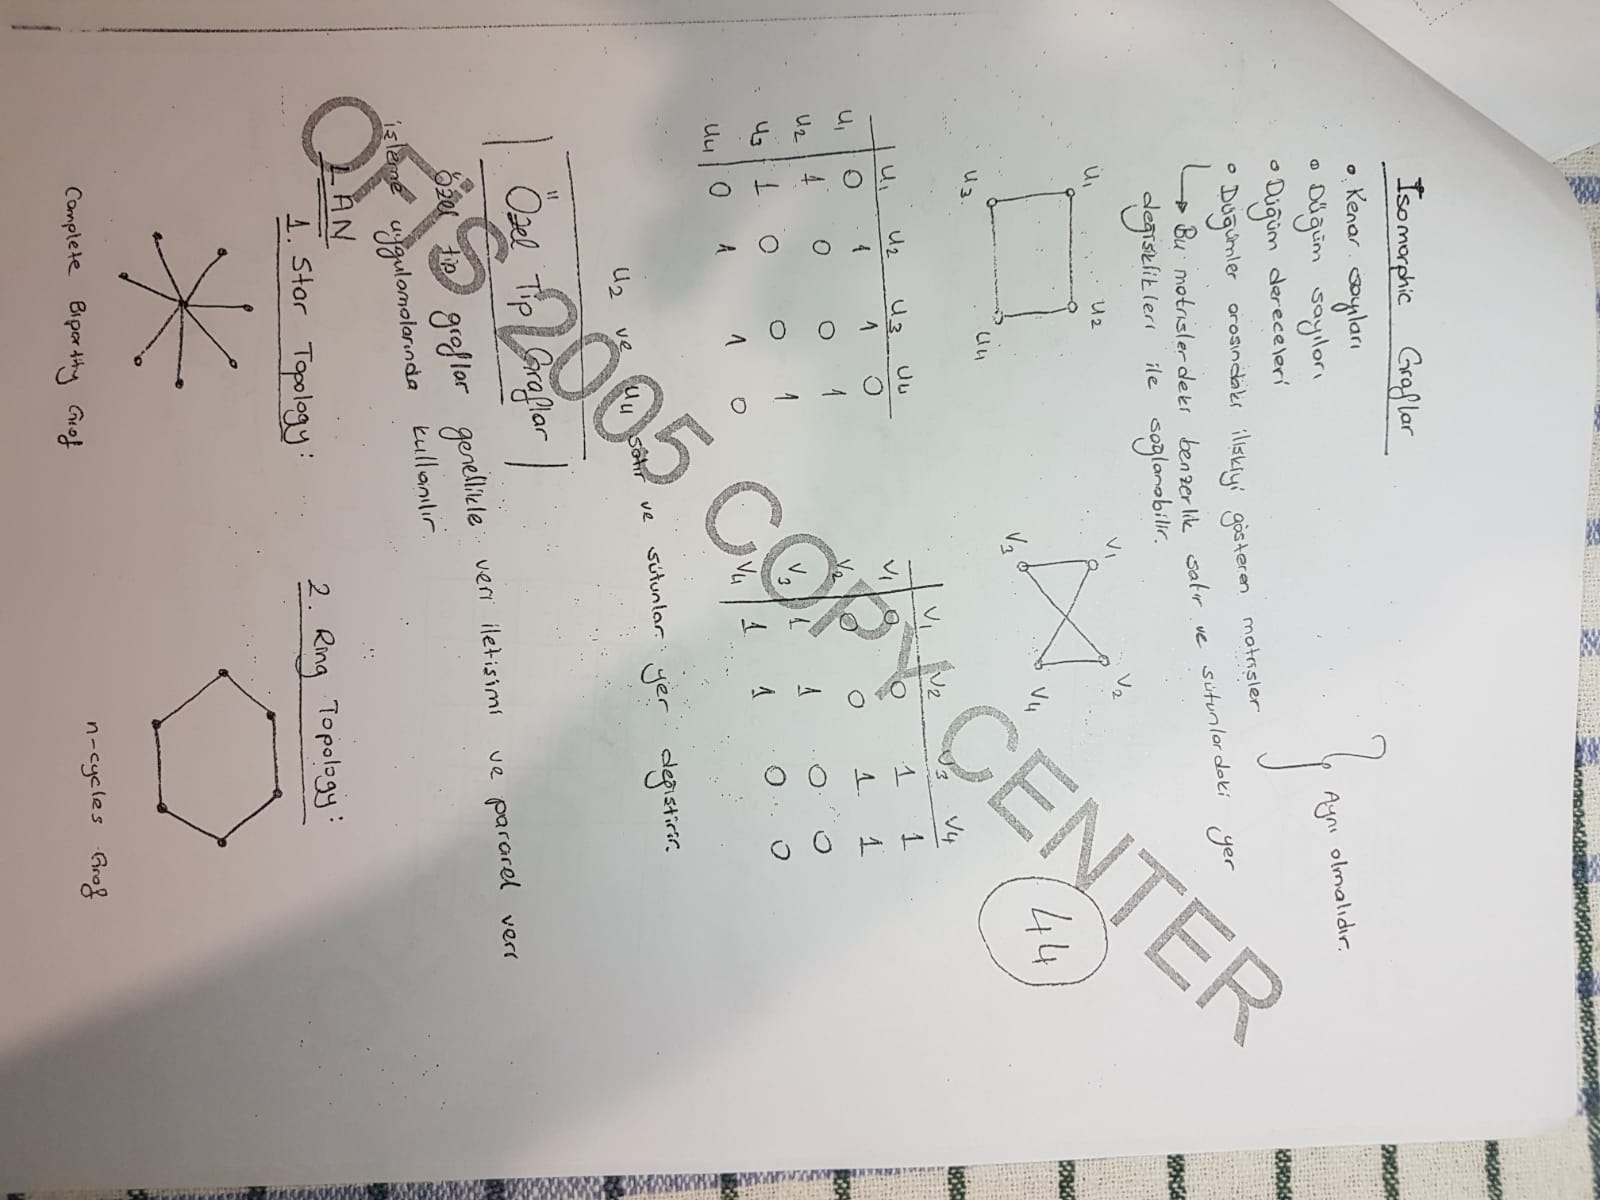 Isomorphic Graflar
• Kenar sayıları
• Düğüm sayıları
• Düğüm dereceleri
} Aynı olmalıdır.
• Düğümler arasındaki ilişkiyi gösteren matrisler
→ Bu matrislerdeki benzerlik satır ve sütunlardaki yer
değişiklikleri ile sağlanabilir.
U1 U2
U3 U4
V1 V2
V3 V4
44
U1 U2 U3 U4
U1 0 1 1 0
U2 1 0 0 1
U3 1 0 0 1
U4 0 1 1 0
V1 V2 V3 V4
V1 0 0 1 1
V2 0 0 1 1
V3 1 1 0 0
V4 1 1 0 0
U2 ve U4 satır ve sütunlar yer değiştirir.
Özel Tip Graflar
Özel tip graflar genellikle veri iletişimi ve pararel veri
işleme uygulamalarında kullanılır.
LAN
1. Star Topology:
2. Ring Topology:
Complete Bipartity Graf
n-cycles Graf
OFİS 2005 COPY CENTER